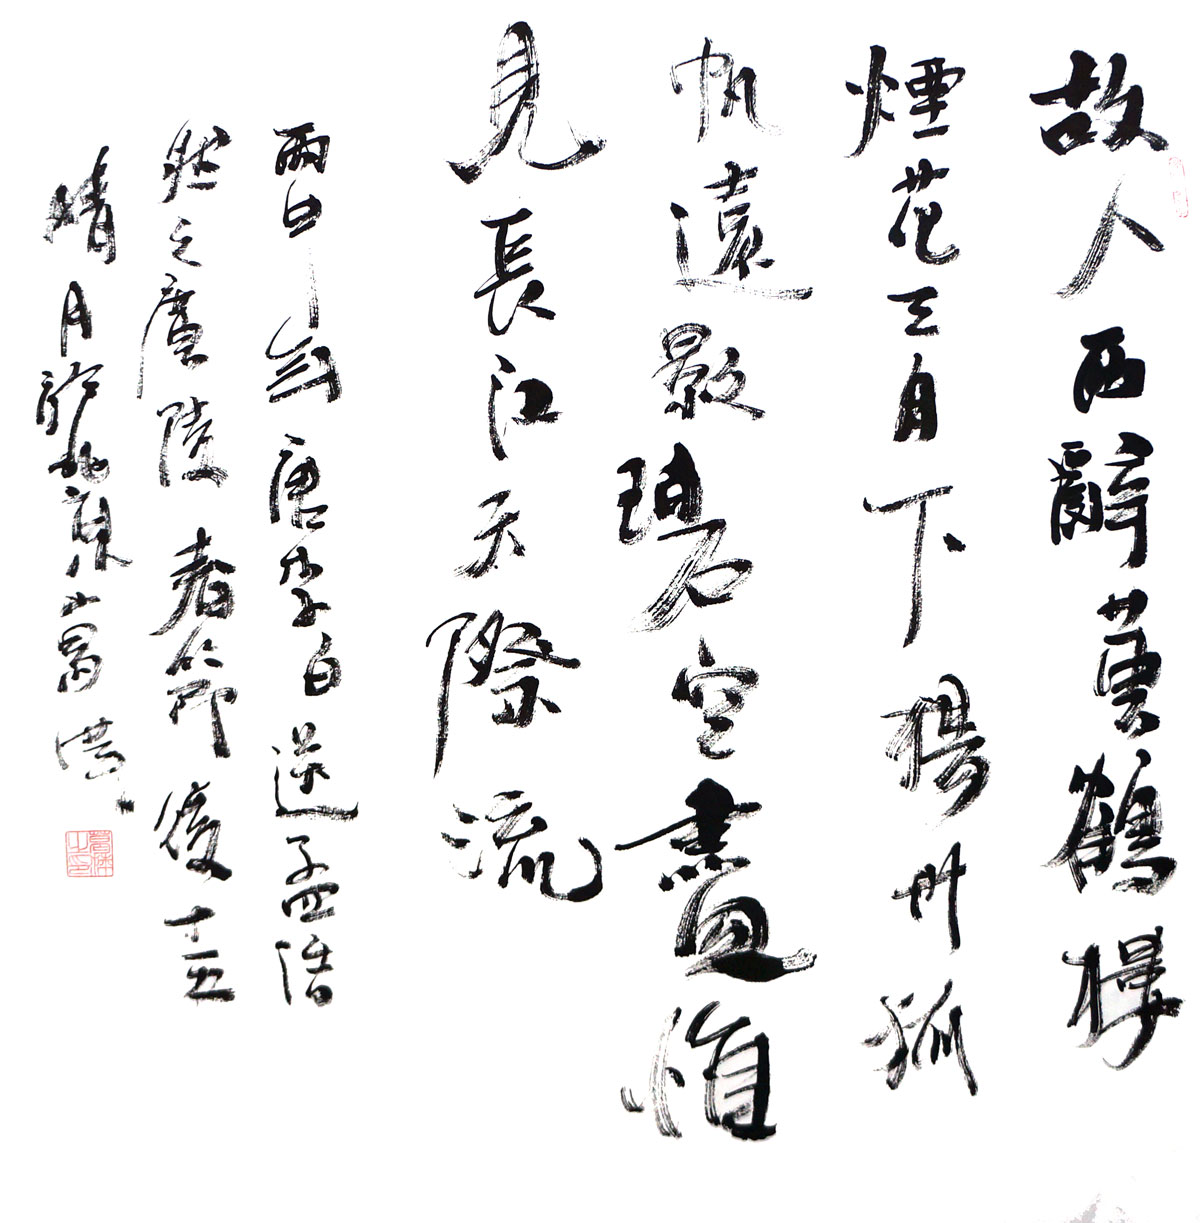 故人西辭黃鶴樓
煙花三月下揚州孤
帆遠影碧空盡惟
見長江天際流
丙申 唐李白送孟浩
然之廣陵 春節後十五
晴月於北京